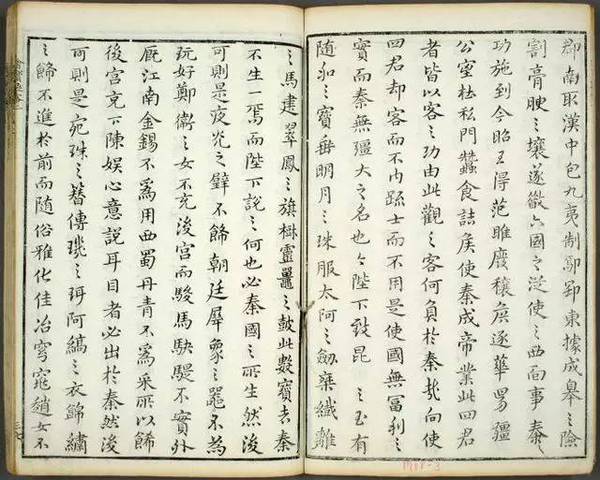 郡南取漢中包九夷制鄢郢東據成皋之險
割膏腴之壤遂散六國之從使之西面事秦
功施到今昭王得范雎廢穰侯逐華陽彊
公室杜私門蠶食諸侯使秦成帝業此四君
者皆以客之功由此觀之客何負於秦哉向使
四君却客而不内疏士而不用是使國無富利之
實而秦無彊大之名也今陛下致昆之玉有
隨和之寶垂明月之珠服太阿之劍乘纖離
之馬建翠鳳之旗樹靈鼉之鼓此數寶者秦
不生一焉而陛下說之何也必秦國之所生然後
可則是夜光之璧不飾朝廷犀象之器不為
玩好鄭衛之女不充後宮而駿馬駃騠不實外
厩江南金錫不為用西蜀丹青不為采所以飾
後宮充下陳娛心意說耳目者必出於秦然後
可則是宛珠之簪傅璣之珥阿縞之衣錦繡
之飾不進於前而隨俗雅化佳冶窈窕趙女不